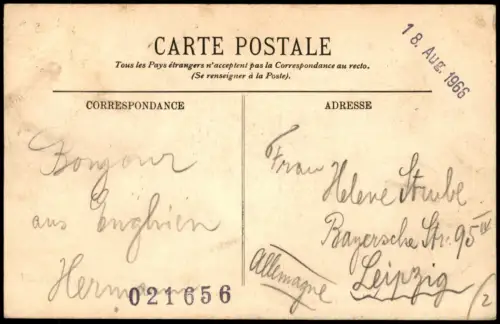 CARTE POSTALE
Tous les Pays étrangers n'acceptent pas la Correspondance au recto.
(Se renseigner à la Poste).
18. Aug. 1966
CORRESPONDANCE
Bonjour
aus Enghien
Hermann
021656
ADRESSE
Frau
Helene Strube
Bayersche Str. 95 III.
Leipzig
Allemagne
2